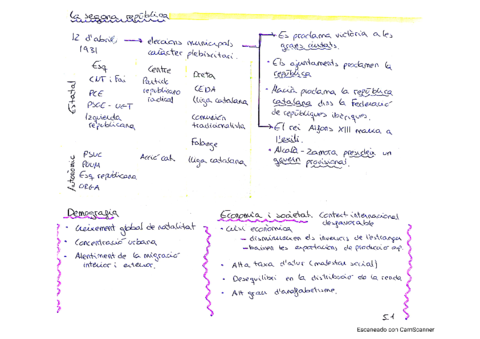 La segona república
12 d'abril 1931 → eleccions municipals caràcter plebiscitari.
→ Es proclama victòria a les grans ciutats.
• Els ajuntaments proclamen la república
• Macià proclama la república catalana dins la Federació de repúbliques ibèriques.
→ El rei Alfons XIII marxa a l'exili.
• Alcalá-Zamora presideix un govern provisional.
Estatal
Esq
CNT i Fai
PCE
PSOE - UGT
Izquierda republicana
Centre
Partido republicano radical
Dreta
CEDA
Lliga catalana
Comunión tradicionalista
Falange
Autonòmic
PSUC
POUM
Esq republicana
Acció cat.
Lliga catalana
Demografia
• Creixement global de natalitat
• Concentració urbana
• Alentiment de la migració interior i exterior.
Economia i societat. Context internacional desfavorable
• Crisi econòmica
– disminueixen els inversors de l'estranger
les exportacions de producció
• Alta taxa d'atur (malestar social)
• Desequilibri en la distribució de la renda
• Alt grau d'analfabetisme.
Escaneado con CamScanner